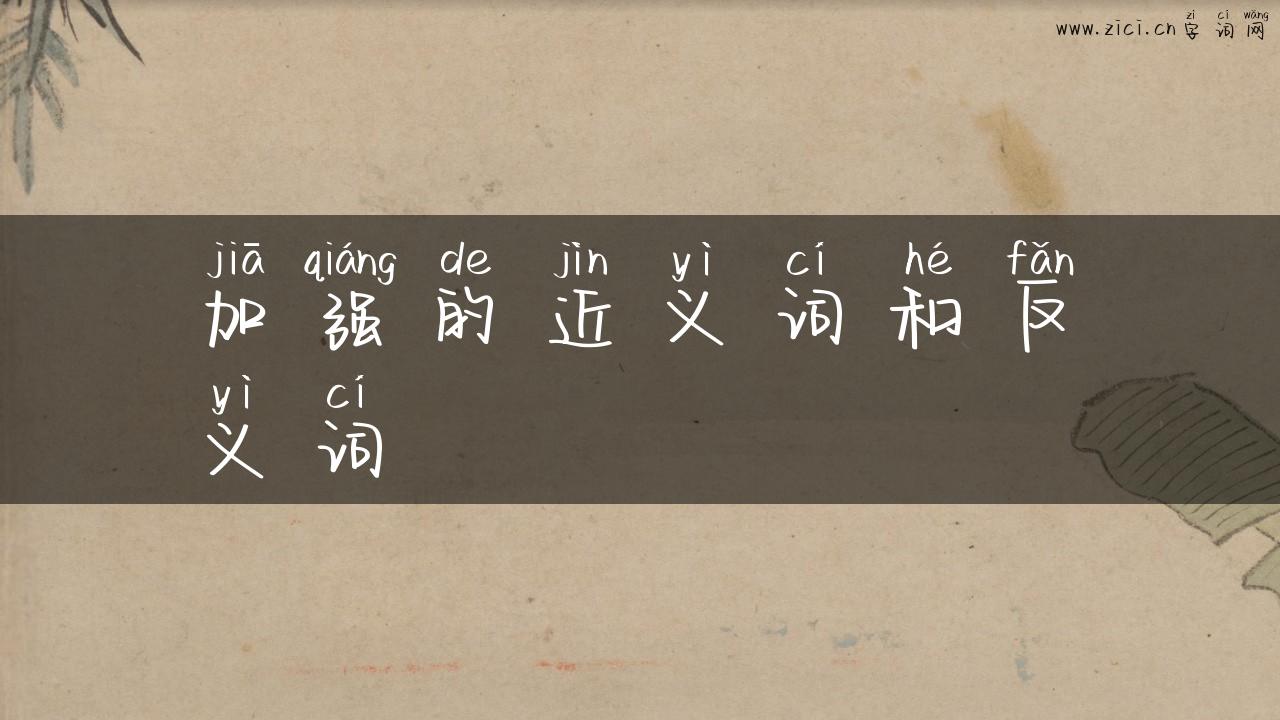 zì cí wǎng
www.zici.cn 字 词 网
jiā qiáng de jìn yì cí hé fǎn
加 强 的 近 义 词 和 反
yì cí
义 词